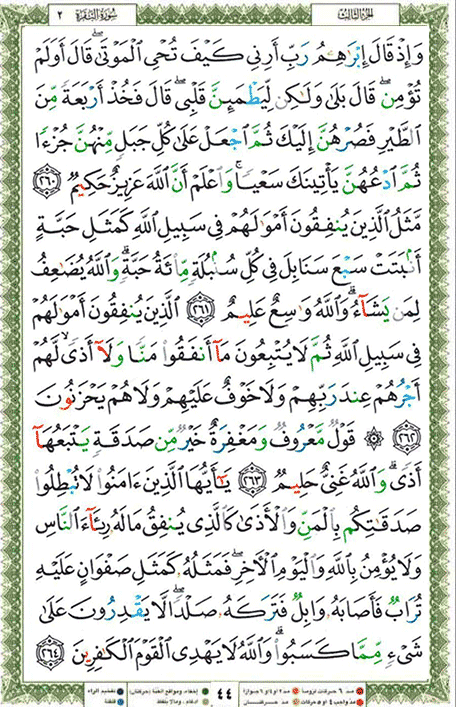 الجزء الثالث
سورة البقرة ٢
وَإِذْ قَالَ إِبْرَٰهِـۧمُ رَبِّ أَرِنِى كَيْفَ تُحْىِ ٱلْمَوْتَىٰ ۖ قَالَ أَوَلَمْ
تُؤْمِن ۖ قَالَ بَلَىٰ وَلَٰكِن لِّيَطْمَئِنَّ قَلْبِى ۖ قَالَ فَخُذْ أَرْبَعَةً مِّنَ
ٱلطَّيْرِ فَصُرْهُنَّ إِلَيْكَ ثُمَّ ٱجْعَلْ عَلَىٰ كُلِّ جَبَلٍ مِّنْهُنَّ جُزْءًا
ثُمَّ ٱدْعُهُنَّ يَأْتِينَكَ سَعْيًا ۚ وَٱعْلَمْ أَنَّ ٱللَّهَ عَزِيزٌ حَكِيمٌ ٢٦٠
مَّثَلُ ٱلَّذِينَ يُنفِقُونَ أَمْوَٰلَهُمْ فِى سَبِيلِ ٱللَّهِ كَمَثَلِ حَبَّةٍ
أَنۢبَتَتْ سَبْعَ سَنَابِلَ فِى كُلِّ سُنۢبُلَةٍ مِّا۟ئَةُ حَبَّةٍ ۗ وَٱللَّهُ يُضَٰعِفُ
لِمَن يَشَآءُ ۗ وَٱللَّهُ وَٰسِعٌ عَلِيمٌ ٢٦١ ٱلَّذِينَ يُنفِقُونَ أَمْوَٰلَهُمْ
فِى سَبِيلِ ٱللَّهِ ثُمَّ لَا يُتْبِعُونَ مَآ أَنفَقُوا۟ مَنًّا وَلَآ أَذًى ۙ لَّهُمْ
أَجْرُهُمْ عِندَ رَبِّهِمْ وَلَا خَوْفٌ عَلَيْهِمْ وَلَا هُمْ يَحْزَنُونَ
٢٦٢ ۞ قَوْلٌ مَّعْرُوفٌ وَمَغْفِرَةٌ خَيْرٌ مِّن صَدَقَةٍ يَتْبَعُهَآ
أَذًى ۗ وَٱللَّهُ غَنِىٌّ حَلِيمٌ ٢٦٣ يَٰٓأَيُّهَا ٱلَّذِينَ ءَامَنُوا۟ لَا تُبْطِلُوا۟
صَدَقَٰتِكُم بِٱلْمَنِّ وَٱلْأَذَىٰ كَٱلَّذِى يُنفِقُ مَالَهُۥ رِئَآءَ ٱلنَّاسِ
وَلَا يُؤْمِنُ بِٱللَّهِ وَٱلْيَوْمِ ٱلْءَاخِرِ ۖ فَمَثَلُهُۥ كَمَثَلِ صَفْوَانٍ عَلَيْهِ
تُرَابٌ فَأَصَابَهُۥ وَابِلٌ فَتَرَكَهُۥ صَلْدًا ۖ لَّا يَقْدِرُونَ عَلَىٰ
شَىْءٍ مِّمَّا كَسَبُوا۟ ۗ وَٱللَّهُ لَا يَهْدِى ٱلْقَوْمَ ٱلْكَٰفِرِينَ ٢٦٤
مد ٦ حركات لزوماً مد ٢ أو ٤ أو ٦ جوازاً
مد واجب ٤ أو ٥ حركات مد حركتان
٤٤
إخفاء، ومواقع الغنة (حركتان) تفخيم الراء
إدغام، وما لا يلفظ قلقلة